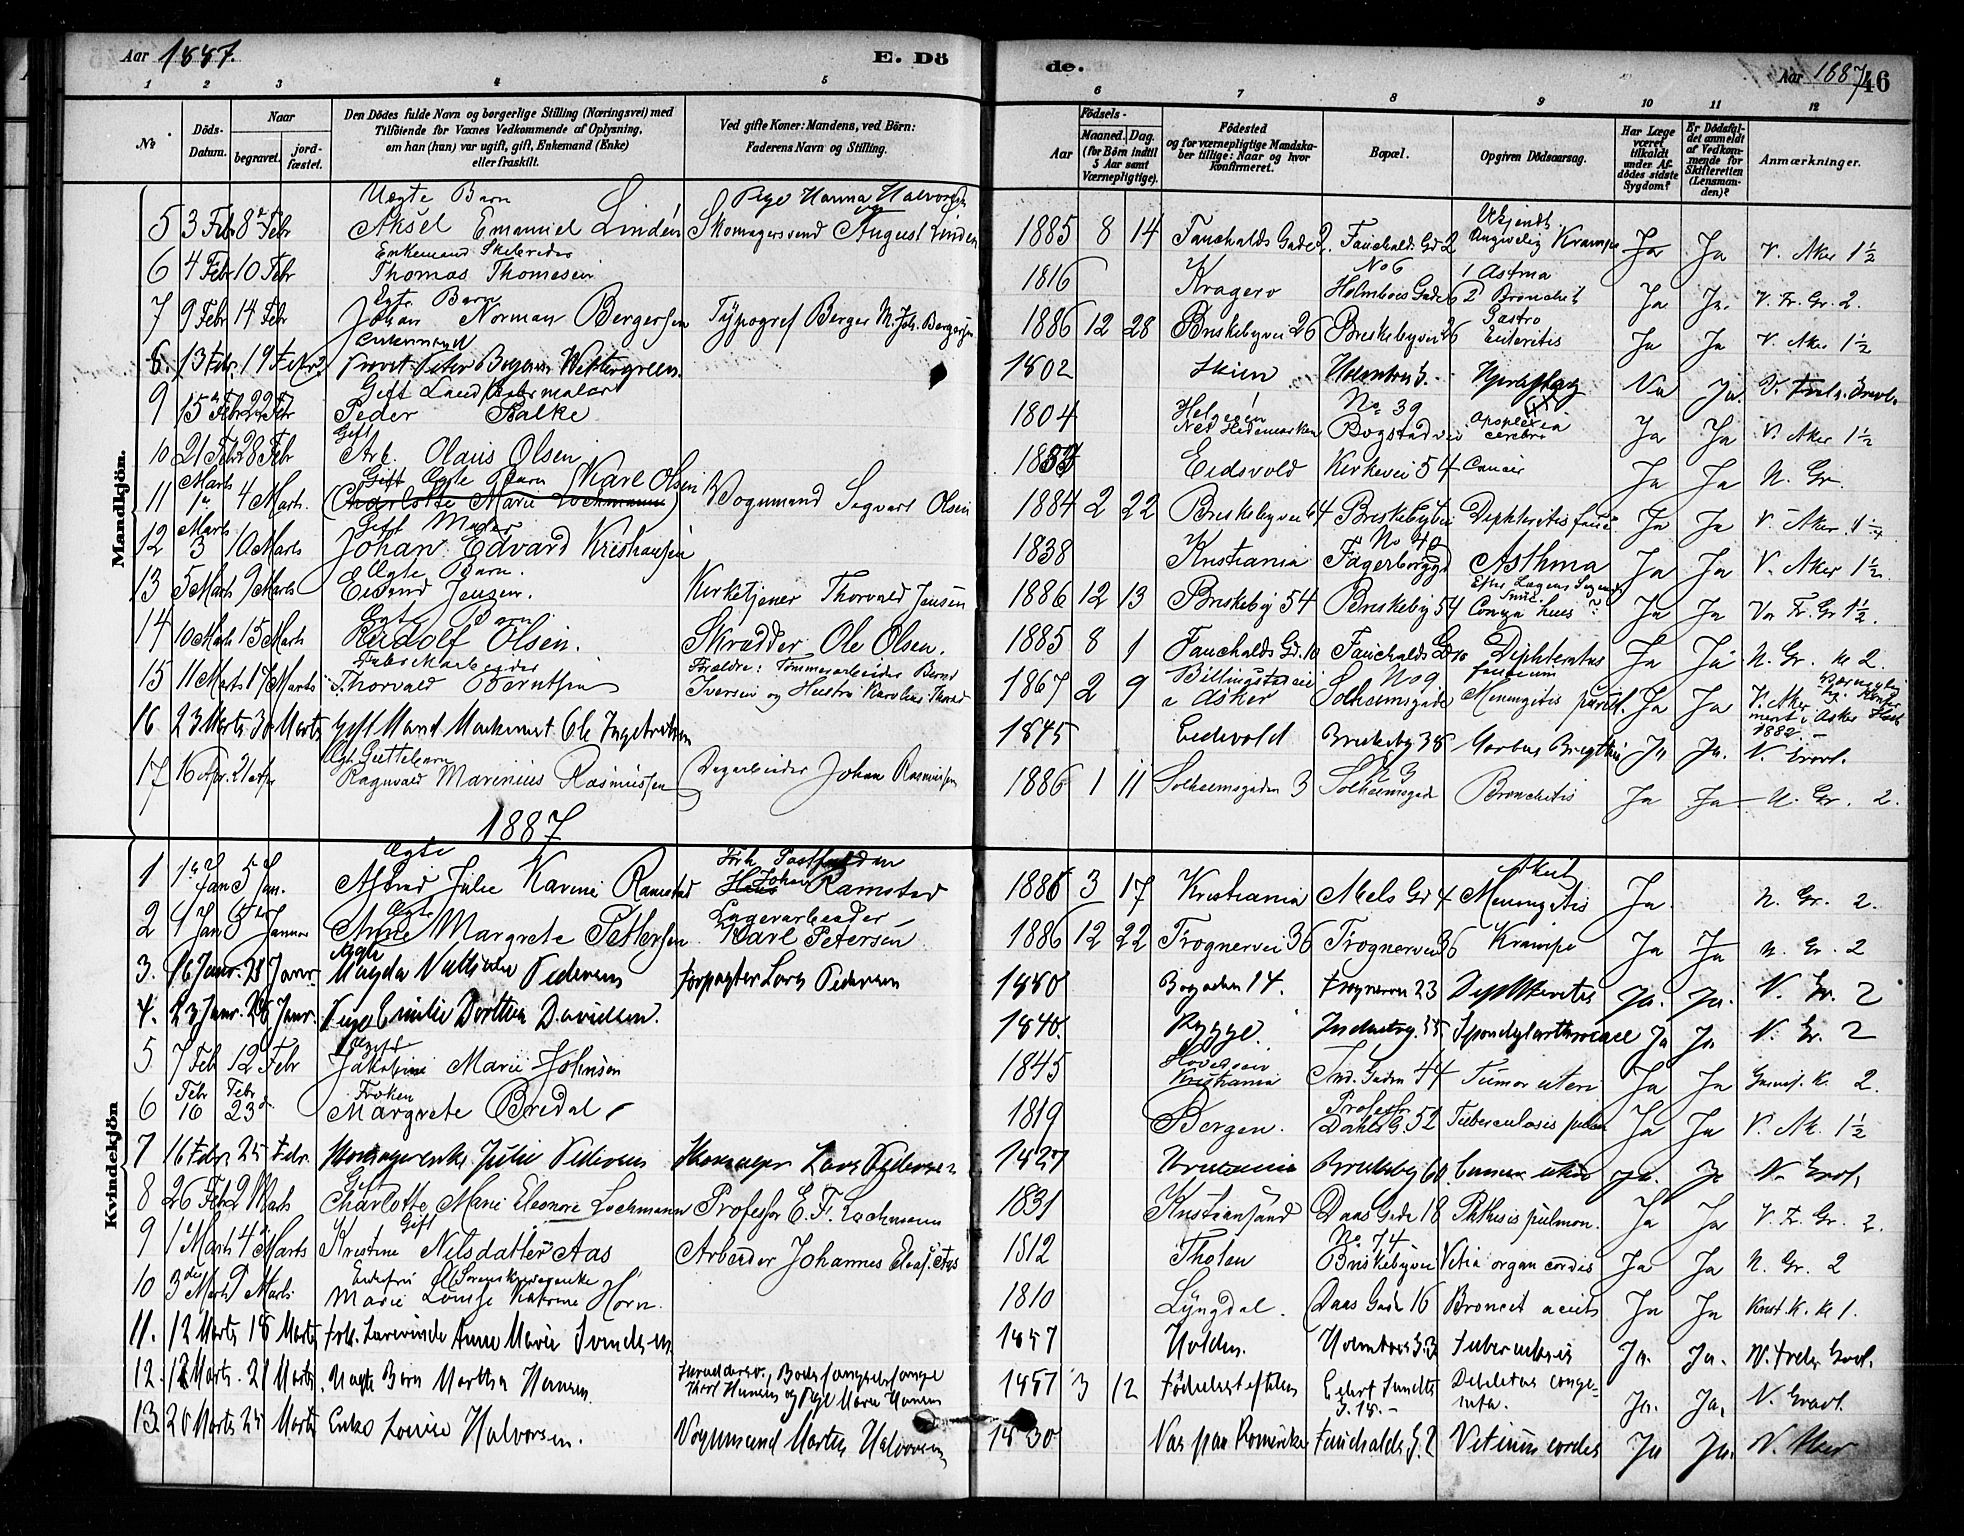 Aar 1887.
E. Dö
de.
Aar 1887
46
1 2 3 4 5 6 7 8 9 10 11 12
No
Döds-Datum.
Naar
begravet.
jord-fæstet.
Den Dödes fulde Navn og borgerlige Stilling (Næringsvei) med
Tilföiende for Voxnes Vedkommende af Oplysning,
om han (hun) var ugift, gift, Enkemand (Enke)
eller fraskilt.
Ved gifte Koner: Mandens, ved Börn:
Faderens Navn og Stilling.
Födsels-
Aar
Maaned. Dag.
(for Börn indtil
5 Aar samt
Værnepligtige).
Födested
og for værnepligtige Mandska-
ber tillige: Naar og hvor
konfirmeret.
Bopæl.
Opgiven Dödsaarsag.
Har Læge
været
tilkaldt
under Af-
dödes sidste
Sygdom?
Er Dödsfal-
det anmeldt
af Vedkom-
mende for
Skifteretten
(Lensman-
den)?
Anmærkninger.
Mandkjön.
Uægte Barn
Pige Hanna Halvorsen
5 3 Febr 8 Febr Aksel Emanuel Lindén Skomagersvend August Linden 1885 8 14 Fauchalds Gade 2. Fauchalds Gd 2 Ukjendt Angivelig Krampe Ja Ja V. Aker 1½
Enkemand
6 4 Febr 10 Febr Thomas Thomesen 1816 Kragerø Holmboes Gade No 6 1 Astma 2 Bronchit Ja Ja. V. Fr. Gr. 2.
Egte Barn
7 9 Febr 14 Febr Johan Norman Bergersen Typograf Berger M. Joh. Bergersen 1886 12 28 Briskebyvei 26 Briskebyvei 26 Gastro Enteritis Ja Ja V. Aker 1½
Enkemand
8. 13 Febr. 19 Febr Provst Peter Wettergreen. 1802 Skien Holmboes G. Na Ja. V.
Gift Landskabsmaler
9 15 Feb 22 Febr Peder Balke 1804 Helgeøen Nes Hedemarken No 39 Bogstadvei apoplexia cerebri Ja Ja V. Aker 1½
Gift
10 21 Feb 28 Febr Arb. Olaus Olsen Eidsvold Kirkevei 54 Cancer Ja Ja N. Gr.
Gift Egte Barn Karl Olsen
11 Marts 1 4 Marts (Charlotte Marie Lochmann) Vognmand Sigvart Olsen 1884 2 22 Briskebyvei 64 Briskebyvei Diphteritis fauc Ja Ja V. Aker 1½
Gift Mader
12 Marts 3 10 Marts Johan Edvard Kristiansen 1838 Kristiania No 40 Fagerborggd Asthma Ja Ja V. Aker 1½
Ægte Barn.
13 5 Marts 9 Marts Eivind Jensen. Kirketjener Thorvald Jensen 1886 12 13 Briskeby 54 Briskeby 54 Ja Ja V. Fr. Gr 1½.
Egte Barn
14 10 Marts 15 Marts Rudolf Olsen. Skrædder Ole Olsen. 1885 8 1 Fauchalds Gd. 10 Fauchalds Gd 10 Diphteritis faucium Ja Ja N. Gr. Kl 2.
Fabrikarbeider
15 11 Marts 17 Marts Thorvald Berntsen Forældre: Tømmerarbeider Bernt Iversen og Hustru Karoline Thorvald 1867 2 9 Billingstad i Asker No 9 Solheimsgade Meningitis Ja Ja V. Aker 1882.
16 23 Marts 30 Marts Gift Mand Maskinist Ole Ingebretsen 1845 Eidsvold Briskeby 38 Morbus Brigthii Ja Ja. N. Gravl.
Egte Guttebarn
17 16 Apr. 21 Apr Ragnvald Marinius Rasmussen Dagarbeider Johan Rasmussen 1886 1 11 Solheimsgaden 3 Solheimsgade Bronchitis Ja Ja N. Gr. 2.
1887
Kvindekjön
Ægte
1 1 Jan 5 Jan. Astrid Julie Karine Ramstad Johan Ramstad 1886 3 17 Kristiania Niels Gd 4 Akut Meningitis Ja N. Gr. 2.
Ægte
2 4 Jan Januar Anne Margrete Pettersen Lagerarbeider Karl Petersen 1886 12 22 Frognervei 36 Frognervei 36 Krampe Ja Ja N. Gr. 2
Ægte
3. 16 Janr. 21 Janr Magda Mathilde Pedersen Forpagter Lars Pedersen 1880 Bogaden 14. Frognerv 23 Diphtheritis Ja. Ja. N. Gr. 2
4. 23 Janr. 28 Janr. Pige Emilie Dorthea Davidsen. 1840. Rygge. Industrig. 35 Spondylarthrocace Ja Ja. N. Gr. 2
Ugift
5 7 Feb 12 Febr Jakobine Marie Johnsen 1845 Hovedøen Kristiania Ind. Gaden 44 Tumor uteri Ja Ja Garnis. K. 2.
Frøken
6 Febr 16 Febr 23 Margrete Bredal 1819 Bergen. Professor Dahls G. 52 Tuberculosis pulm Ja Ja V. Ak. 1½
7 16 Febr. 25 Febr. Skomagerenke Julie Pedersen Skomager Lars Pedersen 1827 Kristiania Briskeby 60. Cancer uteri Ja. Ja N. Gravl.
Gift
8 26 Feb 2 Marts Charlotte Marie Eleonore Lochmann Professor E. F. Lochmann 1831 Kristiansand Daas Gade 18 Phthisis pulmon. Ja Ja V. Fr. Gr. 2.
Gift
9 1 Marts 4 Marts Kristine Nilsdatter Aas Arbeider Johannes Aas 1812 Tholen No 74 Briskebyvei Vitia organ cordis Ja Ja N. Gr. 2
Enkefru
10 3 Marts 9 Marts. Marie Louise Katrine Horn. 1810 Lyngdal. Daas Gade 16 Broncit acut Ja Ja Krist. K. Kl 1.
11. 12 Marts 18 Marts Anne Marie Svendsen 1857 Holden. Holmboes G. 3 Tuberculosis Ja. Ja.
12. 17 Marts. 21 Marts. Uægte Barn Martha Hansen. Karl Hansen og Pige Marie Hansen 1887 3 12 Fødselsstiftelsen Eilert Sundts G. 18. Debilitas congenita. Ja. Ja, N. Gravl.
13. 20 Marts 25 Marts Enke Lovise Halvorsen. Vognmand Morten Halvorsen 1830 Næs paa Romerike Fauchalds G. 2 Vitium cordis Ja Ja. N. Aker